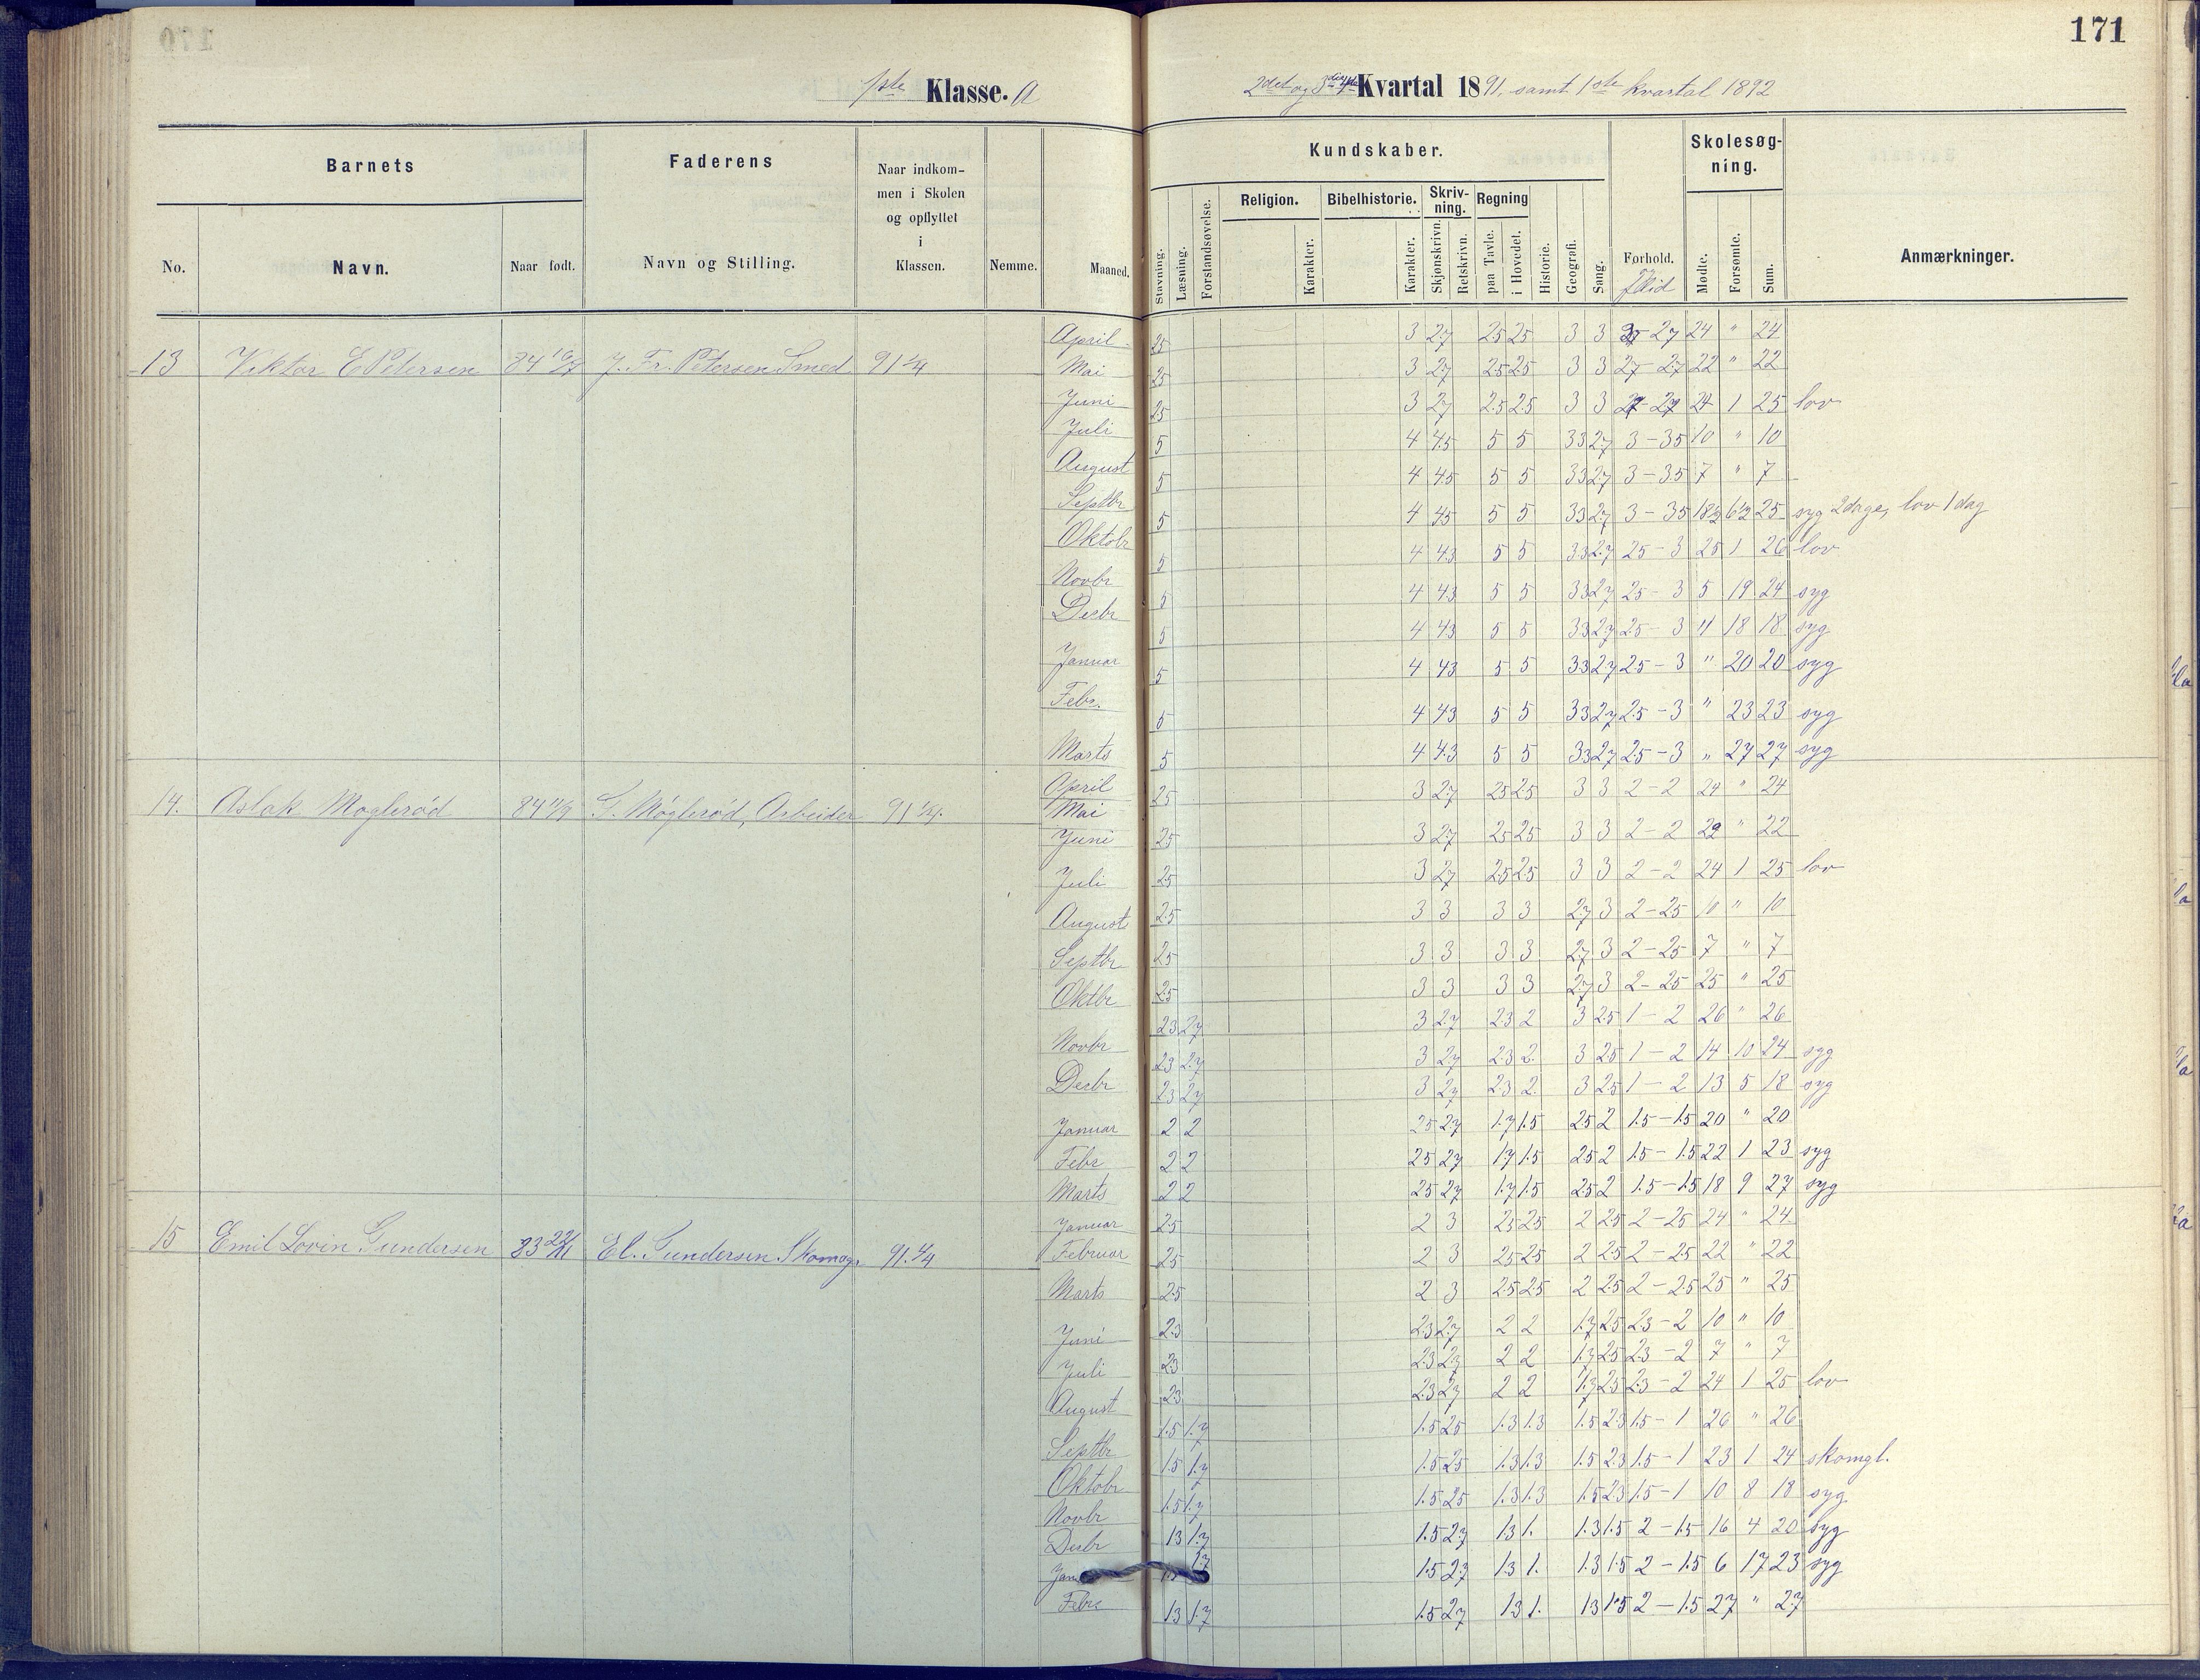 171
1ste Klasse. A
2det og 3die 4de Kvartal 1891, samt 1ste kvartal 1892
Barnets
Faderens
Naar indkom-
men i Skolen
og opflyttet
i
Klassen.
No.
Navn.
Naar født.
Navn og Stilling.
Nemme.
Maaned.
Kundskaber.
Skolesøg-
ning.
Stavning.
Læsning.
Forstandsøvelse.
Religion.
Karakter.
Bibelhistorie.
Karakter.
Skriv-
ning.
Skjønskrivn.
Retskrivn.
Regning
paa Tavle.
i Hovedet.
Historie.
Geografi.
Sang.
Forhold.
Flid
Mødte.
Forsømte.
Sum.
Anmærkninger.
13 Viktor E Petersen J. Fr. Petersen Smed 91 1/4
April 25 3 27 25 25 3 3 27 24 " 24
Mai 25 3 27 25 25 3 3 27 - 27 22 " 22
Juni 25 3 27 25 25 3 3 27 - 27 24 1 25 lov
Juli 5 4 45 5 5 33 27 3 - 35 10 " 10
August 5 4 45 5 5 33 27 3 - 35 7 " 7
Septbr 5 4 45 5 5 33 27 3 - 35 18½ 6½ 25 syg 2 dage, lov 1 dag
Oktobr 5 4 43 5 5 33 27 25 - 3 25 1 26 lov
Novbr 5 4 43 5 5 33 27 25 - 3 5 19 24 syg
Desbr 5 4 43 5 5 33 27 25 - 3 " 18 18 syg
Januar 5 4 43 5 5 33 27 25 - 3 " 20 20 syg
Febr. 5 4 43 5 5 33 27 25 - 3 " 23 23 syg
Marts 5 4 43 5 5 33 27 25 - 3 " 27 27 syg
14. Aslak Møglerød 84 11/9 G. Møglerød, Arbeider 91 1/4.
April 25 3 27 25 25 3 3 2 - 2 24 " 24
Mai
Juni 25 3 27 25 25 3 3 2 - 2 22 " 22
Juli 25 3 27 25 25 3 3 2 - 2 24 1 25 lov
August 25 3 3 3 3 27 3 2 - 25 10 " 10
Septbr 25 3 3 3 3 27 3 2 - 25 7 " 7
Oktbr 25 3 3 3 3 27 3 2 - 25 25 " 25
23 27 3 27 23 2 3 25 1 - 2 26 " 26
Novbr 23 27 3 27 23 2. 3 25 1 - 2 14 10 24 syg
Desbr 23 27 3 27 23 2. 3 25 1 - 2 13 5 18 syg
Januar 2 2 25 27 1.7 1.5 25 2 1.5 - 15 20 " 20
Febr 2 2 25 27 17 15 25 2 15 - 1.5 22 1 23 syg
Marts 2 2 25 27 1.7 1.5 25 2 1.5 - 1.5 18 9 27 syg
15 Emil Lovin Gundersen 83 22/11 El. Gundersen Skomag. 91. 1/4
Januar 25 2 3 25 25 2 25 2 - 25 24 " 24
Februar 25 2 3 25 25 2 25 2 - 25 22 " 22
Marts 25 2 3 25 25 2 25 2 - 25 25 " 25
Juni 23 23 27 2 2 1.7 25 23 - 2 10 " 10
Juli 23 23 27 2 2 1.7 25 23 - 2 7 " 7
August 23 23 27 2 2 1.7 25 23 - 2 24 1 25 lov
1.5 1.7 1.5 25 1.3 1.3 1.5 23 1.5 - 1 26 " 26
Septbr 1.5 1.7 1.5 25 1.3 1.3 1.5 23 1.5 - 1 23 1 24 skomgl.
Oktobr 1.5 1.7 1.5 25 1.3 1.3 1.5 23 1.5 - 1 10 8 18 syg
Novbr
Desbr 13 1.7 1.5 27 13 1. 1.3 1.5 2 - 15 16 4 20 syg
1.7 1.5 27 13 1. 1.3 15 2 - 1.5 6 17 23 syg
Febr 13 1.7 1.5 27 13 1. 13 1.5 2 - 1.5 27 " 27